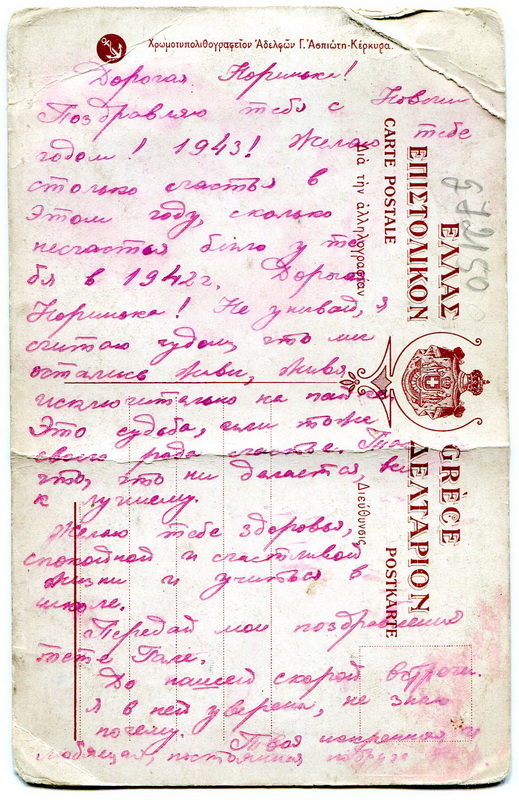 Χρωμοτυπολιθογραφεῖον Ἀδελφῶν Γ. Ἀσπιώτη-Κέρκυρα.
Дорогая Норинька!
Поздравляю тебя с Новым
годом! 1943! Желаю тебе
столько счастья в
этом году, сколько
несчастья было у те
бя в 1942 г. Дорогая
Норинька! Не унывай, я
считаю чудом, что мы
остались живы, живя
исключительно на
Это судьба, или тоже
своего рода счастье.
что, что ни делается, все
к лучшему.
Желаю тебе здоровья,
спокойной и счастливой
жизни и учиться в
школе.
Передай мои поздравления
тете Гале.
До нашей скорой встречи.
Я в ней уверена, не знаю
почему. Твоя искренняя и
любящая, постоянная подруга
ΕΛΛΑΣ GRÈCE
ΕΠΙΣΤΟΛΙΚΟΝ ΔΕΛΤΑΡΙΟΝ
CARTE POSTALE POSTKARTE
Διὰ τὴν ἀλληλογραφίαν Διεύθυνσις